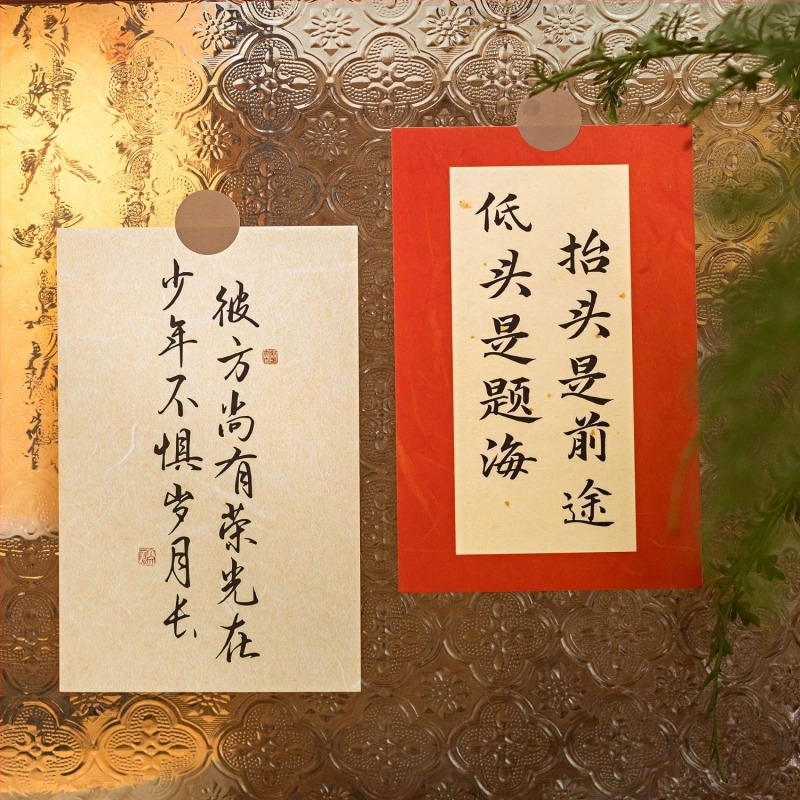 少年不惧岁月长
彼方尚有荣光在
低头是题海
抬头是前途